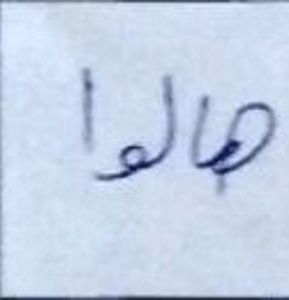 هالوا